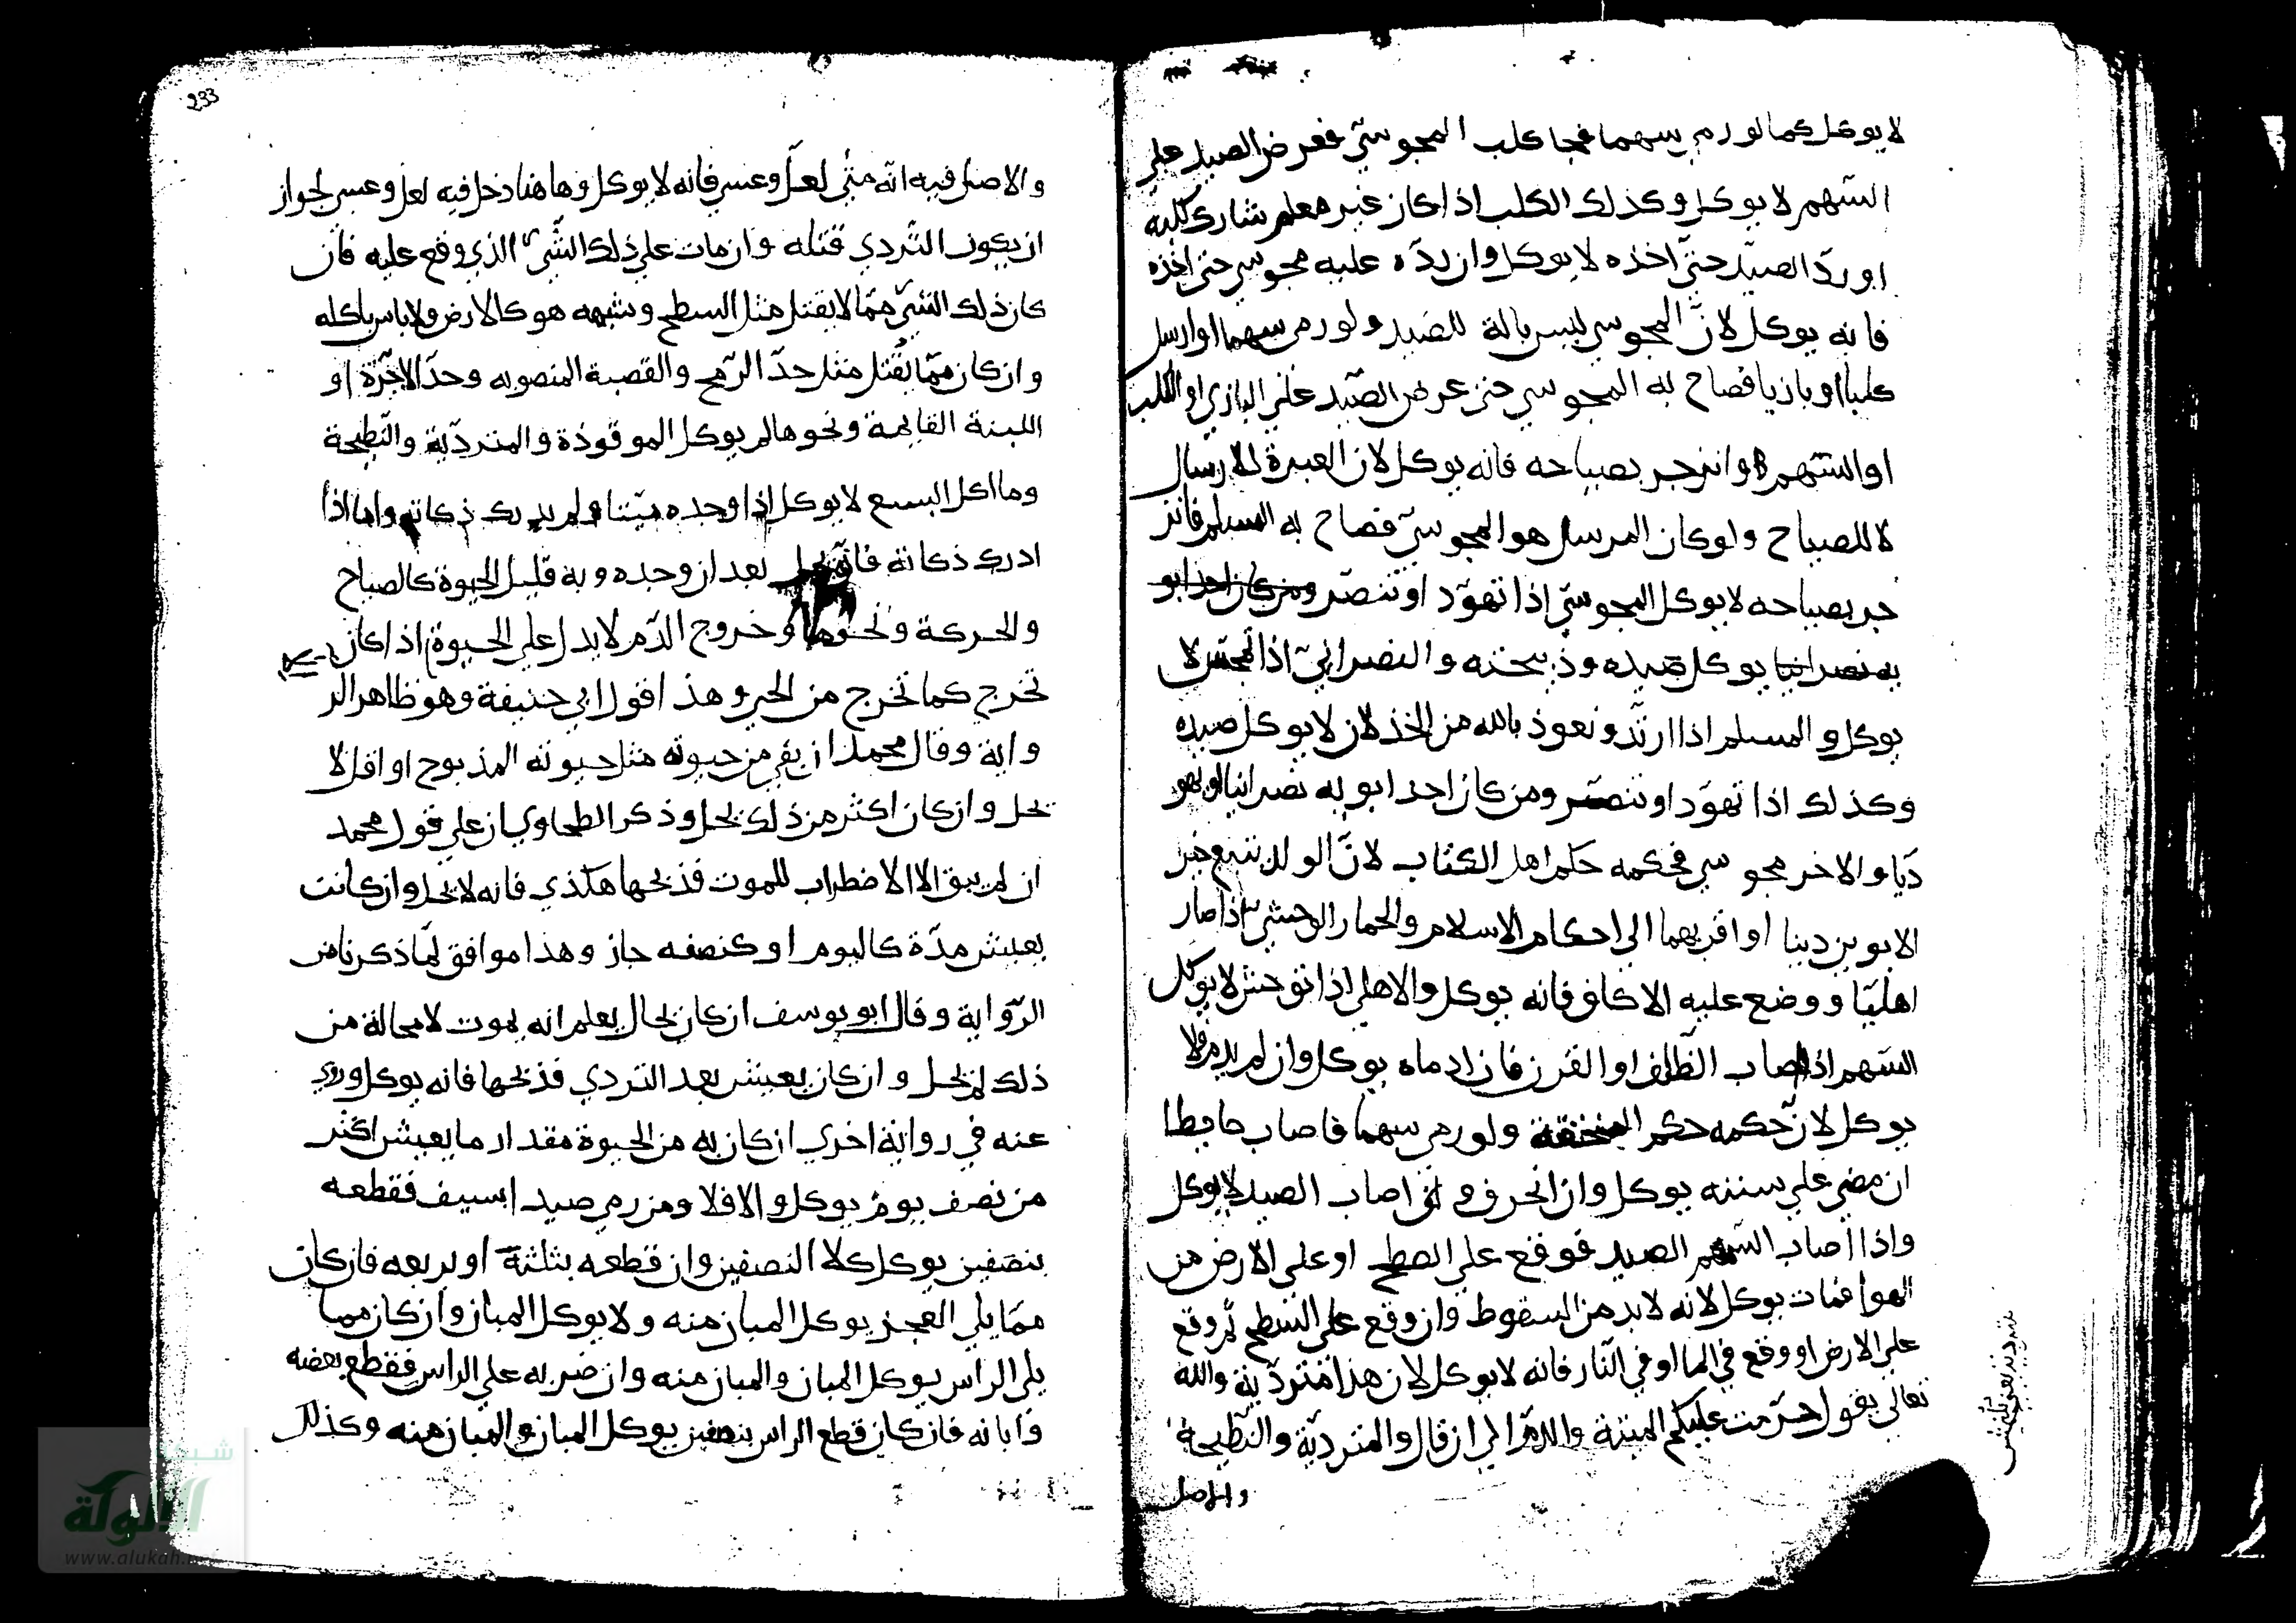 لا يوكل كما لو رمي سهما فجا كلب المجوسيّ فعرض الصيد علي
السّهم لا يوكل وكذلك الكلب اذا كان غير معلم شارك كلبه
او ردّ الصيّد حتّي اخذه لا يوكل وان ردّه عليه مجوسي حتي اخذه
فانه يوكل لانّ المجوسي ليس بالة للصّيد ولو رمي سهما او ارسل
كلبا او بازيا فصاح به المجوسي حتي عرض الصّيد علي البازي او الكلب
او السّهم وانزجر بصياحه فانه يوكل لان العبرة للارسال
لا للصياح ولو كان المرسل هو المجوسيّ فصاح به المسلم فانز
جر بصياحه لا يوكل المجوسيّ اذا تهوّد او تنصّر ومن كان احد ابو
يه نصرانيا يوكل صيده وذبيحته والنصرانيّ اذا تمجّس لا
يوكل والمسلم اذا ارتدّ ونعوذ بالله من الخذلان لا يوكل صيده
وكذلك اذا تهوّد او تنصّر ومن كان احد ابويه نصرانيا او يهو
ديّا والاخر مجوسي فحكمه حكم اهل الكتاب لانّ الولد يتبع خير
الابوين دينا او اقربهما الي احكام الاسلام والحمار الوحشي اذا صار
اهليّا ووضع عليه الاكاف فانه يوكل والاهلي اذا توحش لا يوكل
السّهم اذا اصاب الظّلف او القرن فان ادماه يوكل وان لم يدم فلا
يوكل لانّ حكمه حكم المنخنقة ولو رمي سهما فاصاب حايطا
ان مضي علي سننه يوكل وان انحرف واصاب الصيد لا يوكل
واذا اصاب السّهم الصيد فوقع علي السطح او علي الارض من
الهوا فمات يوكل لانه لا بد من السقوط وان وقع علي السطح ثم وقع
علي الارض او وقع في الما او في النّار فانه لا يوكل لان هذا متردّية والله
تعالي يقول حرّمت عليكم الميتة والدّم الي ان قال والمتردّية والنّطيحة
والاصل
233
والاصل فيه انّه متي لعلّ وعسي فانه لا يوكل وهاهنا دخل فيه لعل وعسي لجواز
ان يكون التّردي قتله وان مات علي ذلك الشّيء الذي وقع عليه فان
كان ذلك الشّيء ممّا لا يقتل مثل السطح وشبهه هو كالارض ولا باس باكله
وان كان ممّا يقتل مثل حدّ الرّمح والقصبة المنصوبه وحدّ الاجرّة او
اللبنة القايمة ونحوها لم يوكل الموقوذة والمتردّية والنّطيحة
وما اكل السبع لا يوكل اذا وجده ميّتا ولم يدرك ذكاته واما اذا
ادرك ذكاته فانّه يحل بعد ان وجده وبه قليل الحيوة كالصياح
والحركة ونحوها وخروج الدّم لا يدل علي الحيوة اذا كان
تخرج كما تخرج من الحي وهذا قول ابي حنيفة وهو ظاهر الر
واية وقال محمد ان بقي من حيوته مثل حيوته المذبوح او اقل لا
يحل وان كان اكثر من ذلك يحل وذكر الطحاوي ان علي قول محمد
ان لم يبق الا الاضطراب للموت فذبحها هكذي فانه لا يحل وان كانت
يعيش مدّة كاليوم او كنصفه جاز وهذا موافق لما ذكرنا من
الرّواية وقال ابو يوسف ان كان بحال يعلم انه يموت لا محالة من
ذلك لم يحل وان كان يعيش بعد التردي فذبحها فانه يوكل وروي
عنه في رواية اخري ان كان به من الحيوة مقدار ما يعيش اكثر
من نصف يوم يوكل والا فلا ومن رمي صيدا بسيف فقطعه
بنصفين يوكل كلا النصفين وان قطعه بثلثة او بربعه فان كان
ممّا يلي العجز يوكل المبان منه ولا يوكل المبان وان كان مما
يلي الراس يوكل المبان والمبان منه وان ضربه علي الراس فقطع بعضه
وابانه فان كان قطع الراس بنصفين يوكل المبان والمبان منه وكذلك
شبكة
الألوكة
www.alukah.net